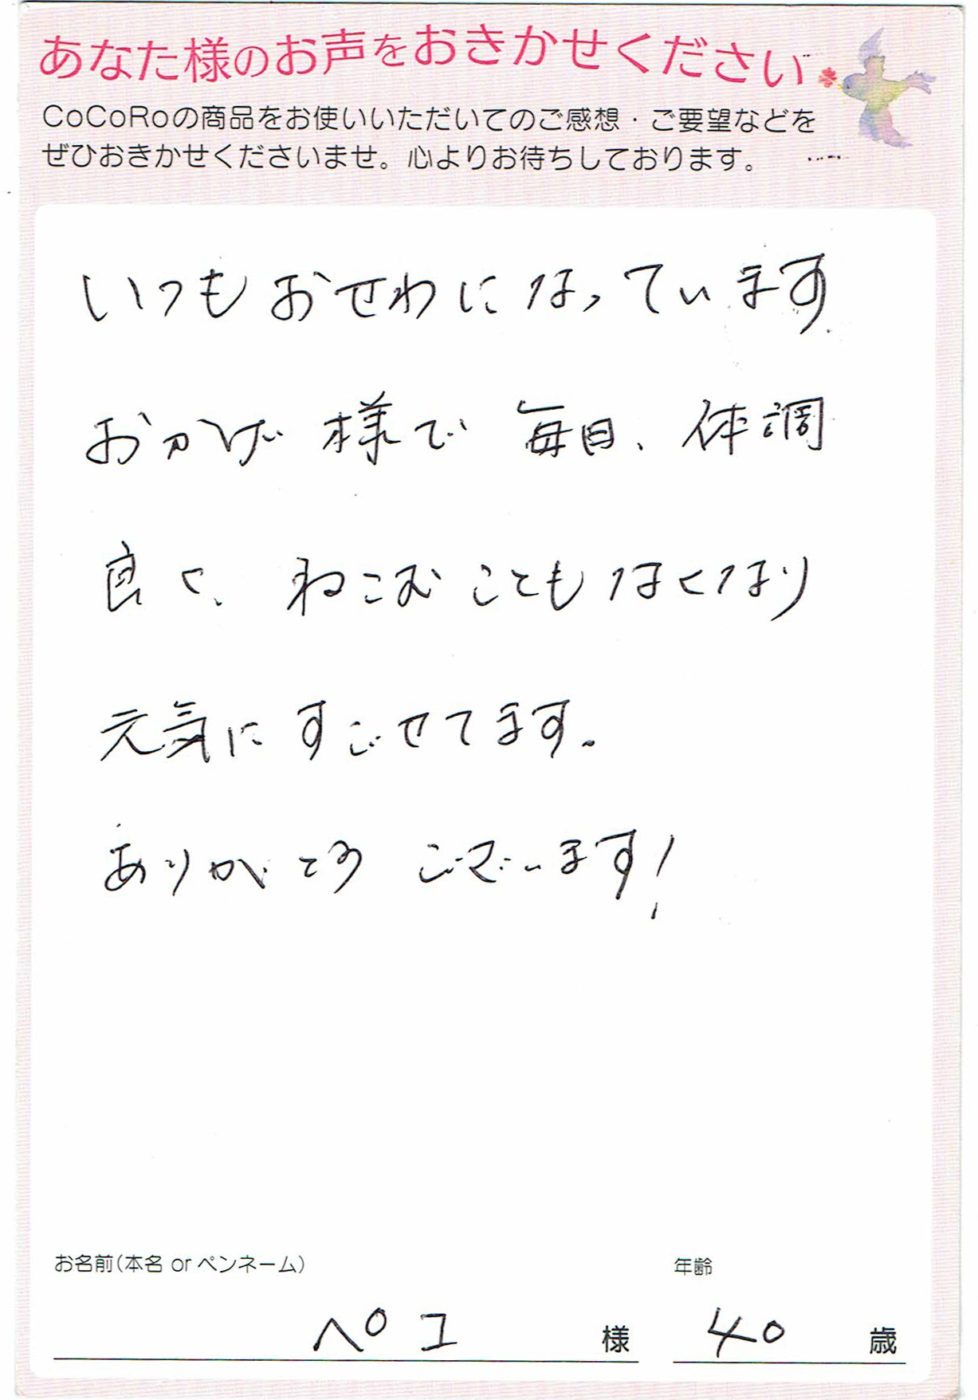 あなた様のお声をおきかせください
CoCoRoの商品をお使いいただいてのご感想・ご要望などを
ぜひおきかせくださいませ。心よりお待ちしております。
いつもおせわになっています
おかげ様で毎日、体調
良く、ねこむこともなくなり
元気にすごせてます。
ありがとうございます!
お名前(本名 or ペンネーム)
年齢
ペコ 様 40 歳